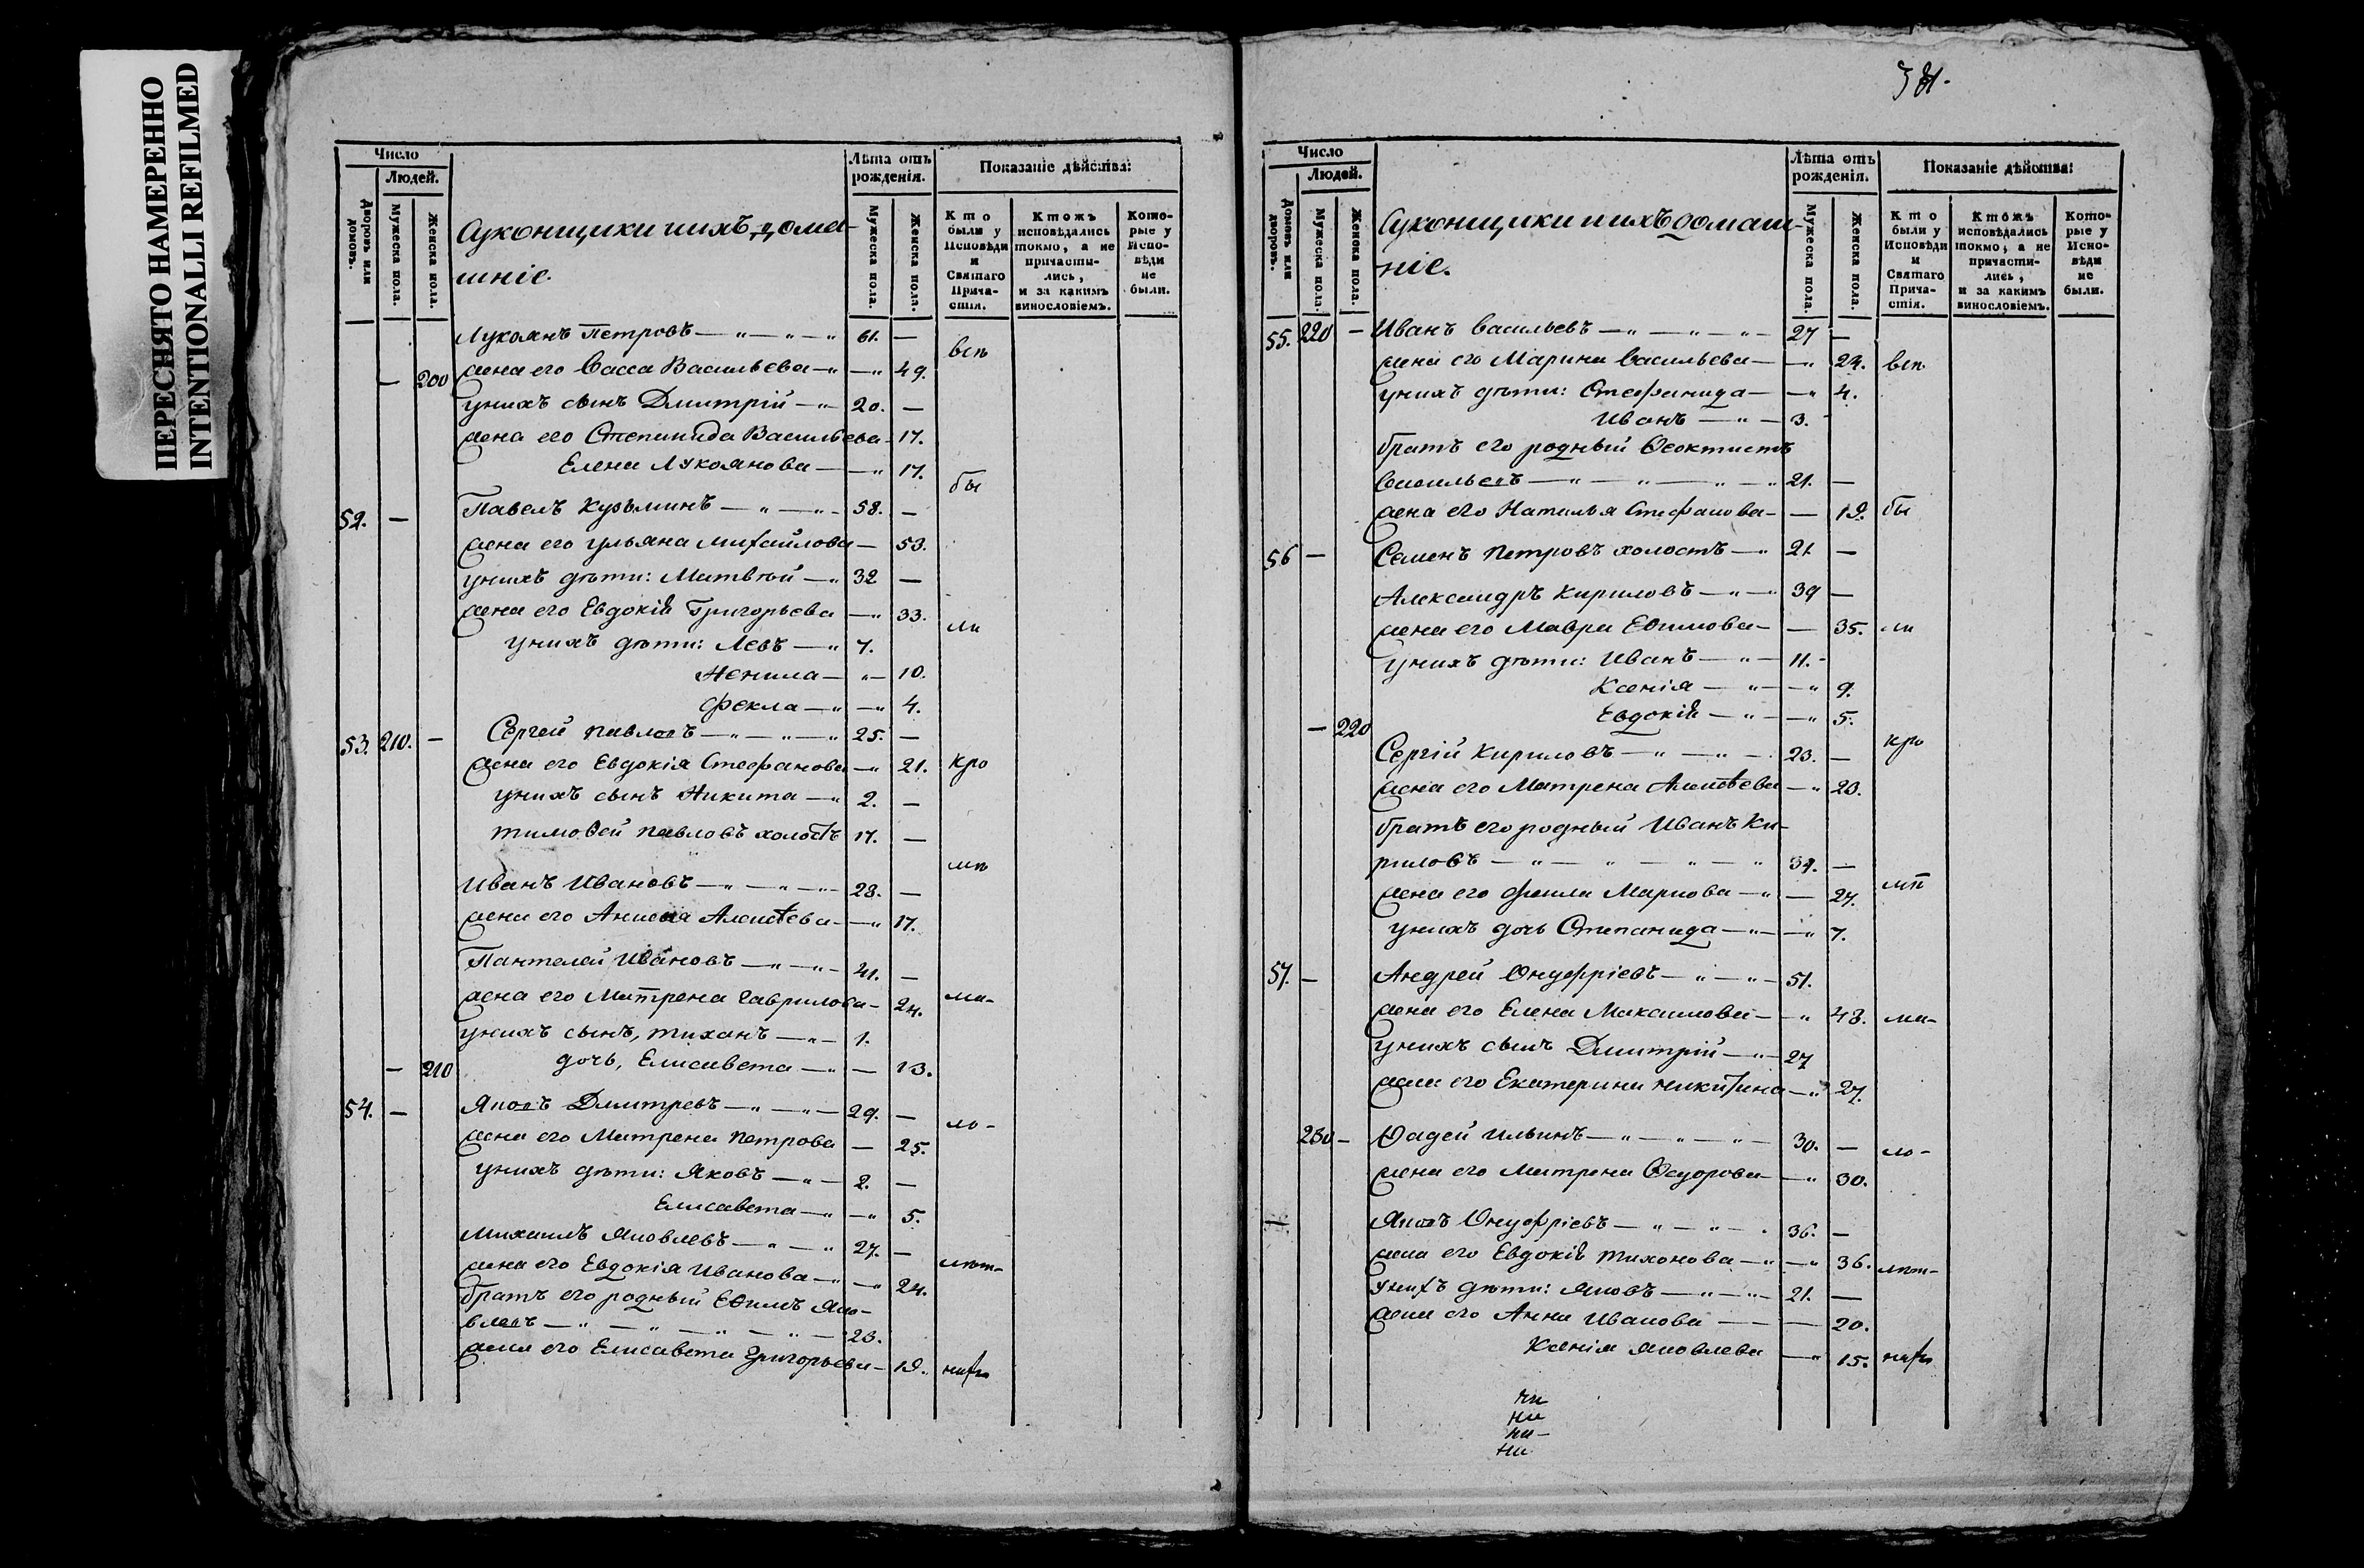 ПЕРЕСНЯТО НАМЕРЕННО
INTENTIONALLI REFILMED
Число
Людей.
Дворовъ или домовъ.
Мужеска пола.
Женска пола.
Суконщики и ихъ дома-
шніе.
Лѣта отъ рожденія.
Мужеска пола.
Женска пола.
Показаніе дѣйства:
Кто были у Исповѣди и Святаго Прича-стія.
Ктожъ исповѣдались токмо, а не причасти-лись, и за какимъ винословіемъ.
Кото-рые у Испо-вѣди не были.
Лукоянъ Петровъ — 61. —
— 200 жена его Васса Васильева — 49. всѣ
у нихъ сынъ Дмитрій — 20. —
жена его Степанида Васильева — 17.
Елена Лукоянова — 17.
бы
52. — Павелъ Кузьминъ — 58. —
жена его Ульяна Михайлова — 53.
у нихъ дѣти: Матвѣй — 32 —
жена его Евдокія Григорьева — 33.
ли
у нихъ дѣти: Левъ — 7.
Ненила — 10.
Фекла — 4.
53. 210. — Сергей Павловъ — 25. —
жена его Евдокія Стефанова — 21. кро
у нихъ сынъ Никита — 2. —
Тимоѳей Павловъ холостъ 17. —
Иванъ Ивановъ — 28. —
жена его Алексѣева — 17.
Пантелей Ивановъ — 41. —
жена его Матрена Гаврилова — 24. ма-
у нихъ сынъ, Тихонъ — 1.
— 210 дочь, Елисавета — 13.
54. — Яковъ Дмитревъ — 29. — ло-
жена его Матрена Петрова — 25.
у нихъ дѣти: Яковъ — 2. —
Елисавета — 5.
Михаилъ Яковлевъ — 27. —
жена его Евдокія Иванова — 24. лѣт-
братъ его родный Еѳимъ Яко-
влевъ — 23.
жена его Елисавета Григорьева — 19. нихъ
Число
Людей.
Домовъ или дворовъ.
Мужеска пола.
Женска пола.
Суконщики и ихъ домаш-
ніе.
Лѣта отъ рожденія.
Мужеска пола.
Женска пола.
Показаніе дѣйства:
Кто были у Исповѣди и Святаго Прича-стія.
Ктожъ исповѣдались токмо, а не причасти-лись, и за какимъ винословіемъ.
Кото-рые у Испо-вѣди не были.
55. 220 — Иванъ Васильевъ — 27 —
жена его Марина Васильева — 24. всѣ
у нихъ дѣти: Стефанида — 4.
Иванъ — 3.
братъ его родный Ѳеоктистъ
Васильевъ — 21. —
жена его Наталья Стефанова — 19. бы
56 — Семенъ Петровъ холостъ — 21 —
Александръ Кириловъ — 39 —
жена его Мавра Еѳимова — 35. ли
у нихъ дѣти: Иванъ — 11.
Ксенія — 9.
Евдокія — 5.
— 220
кро
Сергій Кириловъ — 23. —
жена его Матрена Алексѣева — 23.
братъ его родный Иванъ Ки-
риловъ — 34. —
жена его Фекла Маркова — 27.
у нихъ дочь Степанида — 7.
57. — Андрей Онуфріевъ — 51.
жена его Елена Максимова — 48. ма-
у нихъ сынъ Дмитрій — 27
жена его Екатерина Никитина — 27.
230 — Ѳадей Ильинъ — 30. — ло-
жена его Матрена Ѳедорова — 30.
— Яковъ Онуфріевъ — 36. —
жена его Евдокія Тихонова — 36. лѣт-
у нихъ дѣти: Яковъ — 21. —
жена его Анна Иванова — 20.
Ксенія Яковлева — 15. нихъ